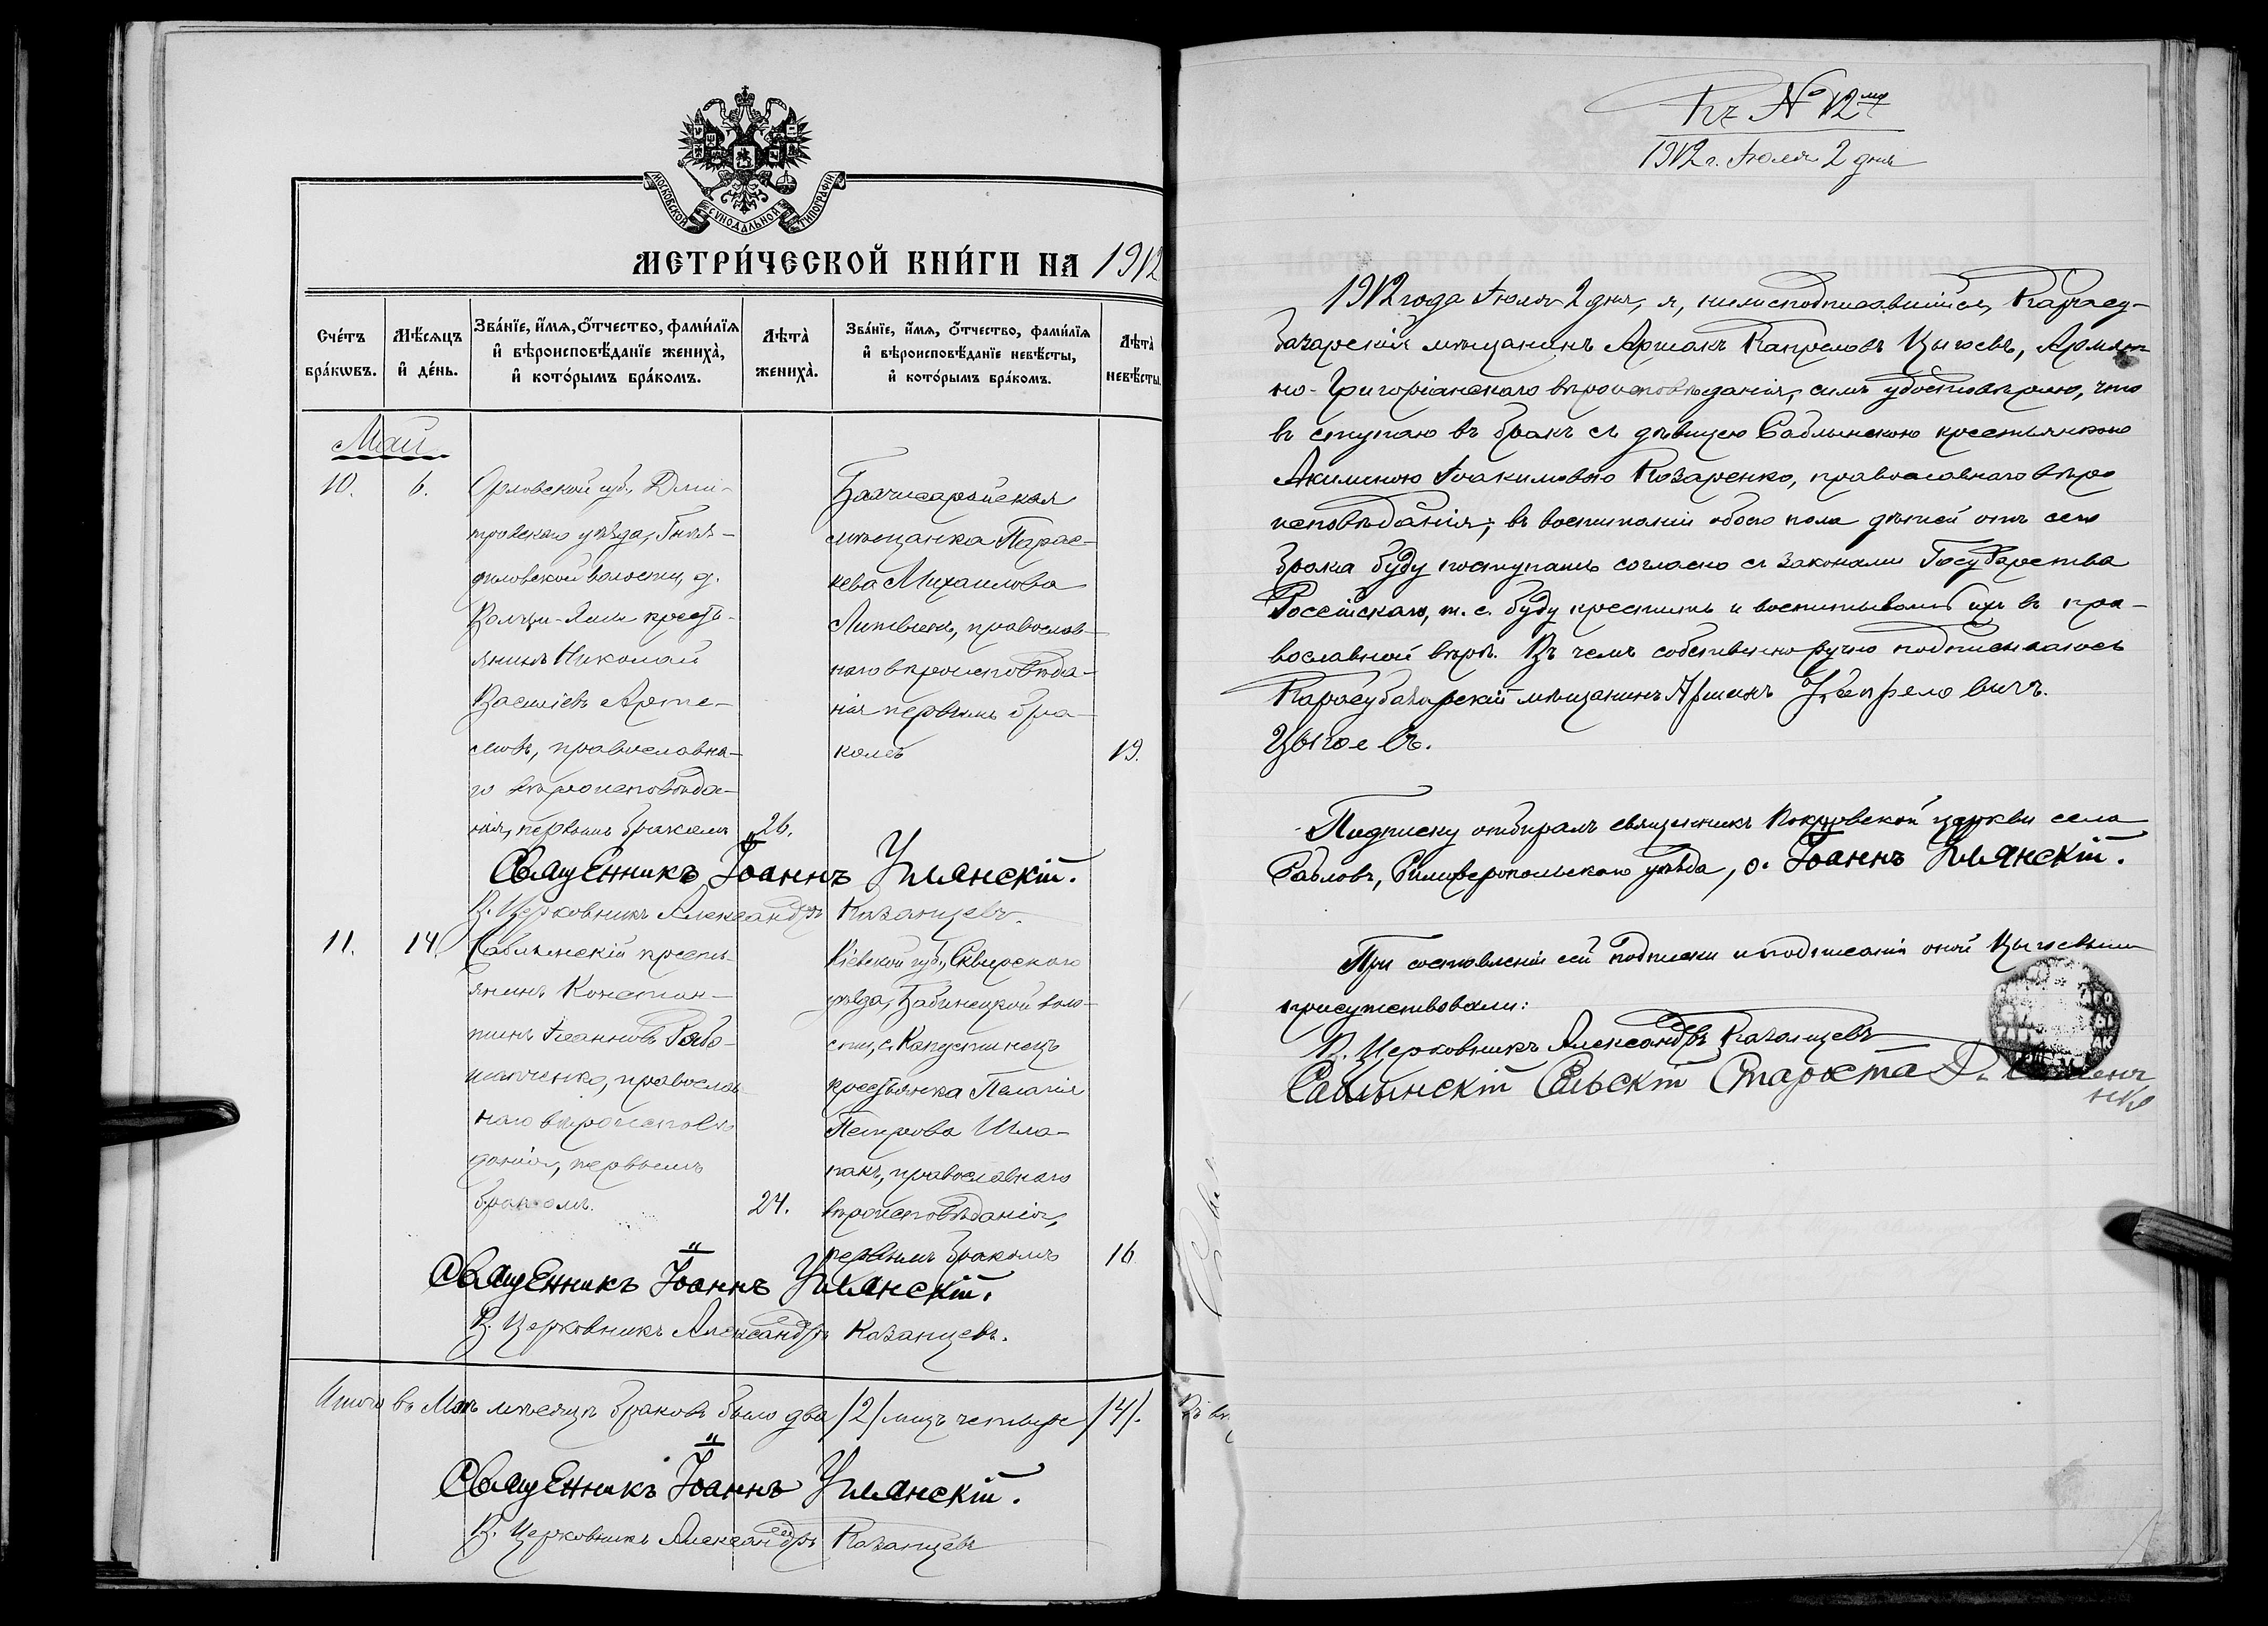 МОСКОВСКОЙ СѴНОДАЛЬНОЙ ТИПОГРАФІИ
МЕТРИ́ЧЕСКОЙ КНИ́ГИ НА 1912
Сче́тъ бра́кѡвъ.
Мѣ́сѧцъ и҆ де́нь.
Зва́нїе, и҆́мѧ, ѻ҆́тчество, фами́лїѧ и҆ вѣроисповѣ́данїе жениха̀, и҆ кото́рымъ бра́комъ.
Лѣта̀ жениха̀.
Зва́нїе, и҆́мѧ, ѻ҆́тчество, фами́лїѧ и҆ вѣроисповѣ́данїе невѣ́сты, и҆ кото́рымъ бра́комъ.
Лѣта̀ невѣ́сты.
Май
10.
6.
Орловской губ., Дми-
тровскаго уѣзда,
волости, д.
Волчьи-Ямы кресть-
янинъ Николай
Василіевъ Арте-
мовъ, православна-
го вѣроисповѣда-
нія, первымъ бракомъ
26.
Бахчисарайская
мѣщанка Парас-
кева Михаилова
Литвинъ, православ-
наго вѣроисповѣда-
нія первымъ бра-
комъ
19.
Священникъ Іоаннъ Уманскій.
В. Церковникъ Александръ Казанцевъ.
11.
14.
Саблынскій кресть-
янинъ Констан-
тинъ Іоанновъ Рябо-
шапченко, православ
наго вѣроисповѣ
данія, первымъ
бракомъ.
24.
Кіевской губ., Сквирскаго
уѣзда, Бабинецкой воло-
сти, с. Капустинецъ
крестьянка Пелагія
Петрова Шла-
пакъ, православнаго
вѣроисповѣданія,
первымъ бракомъ
16
Священникъ Іоаннъ Уманскій.
В. Церковникъ Александръ Казанцевъ.
Итого въ Маѣ мѣсяцѣ браковъ было два /2/ лицъ четыре /4/.
Священникъ Іоаннъ Уманскій.
В. Церковникъ Александръ Казанцевъ
Къ № 12му
1912 г. Іюля 2 дня
1912 года Іюля 2 дня, я, нижеподписавшійся, Карасу-
базарскій мѣщанинъ Аршакъ Капреловъ Цыговъ, Армян-
но-Григоріанскаго вѣроисповѣданія, симъ удостовѣряю, что
вступаю въ бракъ съ дѣвицею Саблынскою крестьянкою
Акилиною Іоакимовою Козаренко, православнаго вѣро
исповѣданія; въ воспитаніи обоего пола дѣтей отъ сего
брака буду поступать согласно съ законами Государства
Россійскаго, т. е. буду крестить и воспитывать ихъ въ пра-
вославной вѣрѣ. Въ чемъ собственноручно подписываюсь
Карасубазарскій мѣщанинъ Аршакъ Капреловичъ
Цыговъ.
Подписку отбиралъ священникъ Покровской церкви села
Сабловъ, Симферопольскаго уѣзда, о. Іоаннъ Уманскій.
При составленіи сей подписки и подписаніи оной Цыговымъ
присутствовали:
В. Церковникъ Александръ Казанцевъ
Саблынскій Сельскій Староста